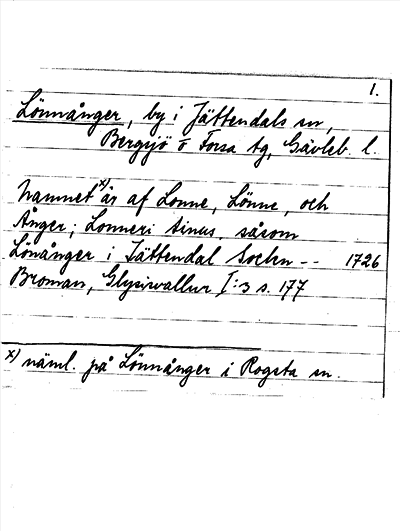 1.
Lönnånger, by i Jättendals sn,
Bergsjö o Forsa tg, Gävleb. l.
Namnet x) är af Lonne, Lönne, och
Ånger; Lonneri sinus, såsom
Lönånger i Jättendal Sochn -- 1726
Broman, Glysisvallur I:3 s. 177
x) näml. på Lönnånger i Rogsta sn.